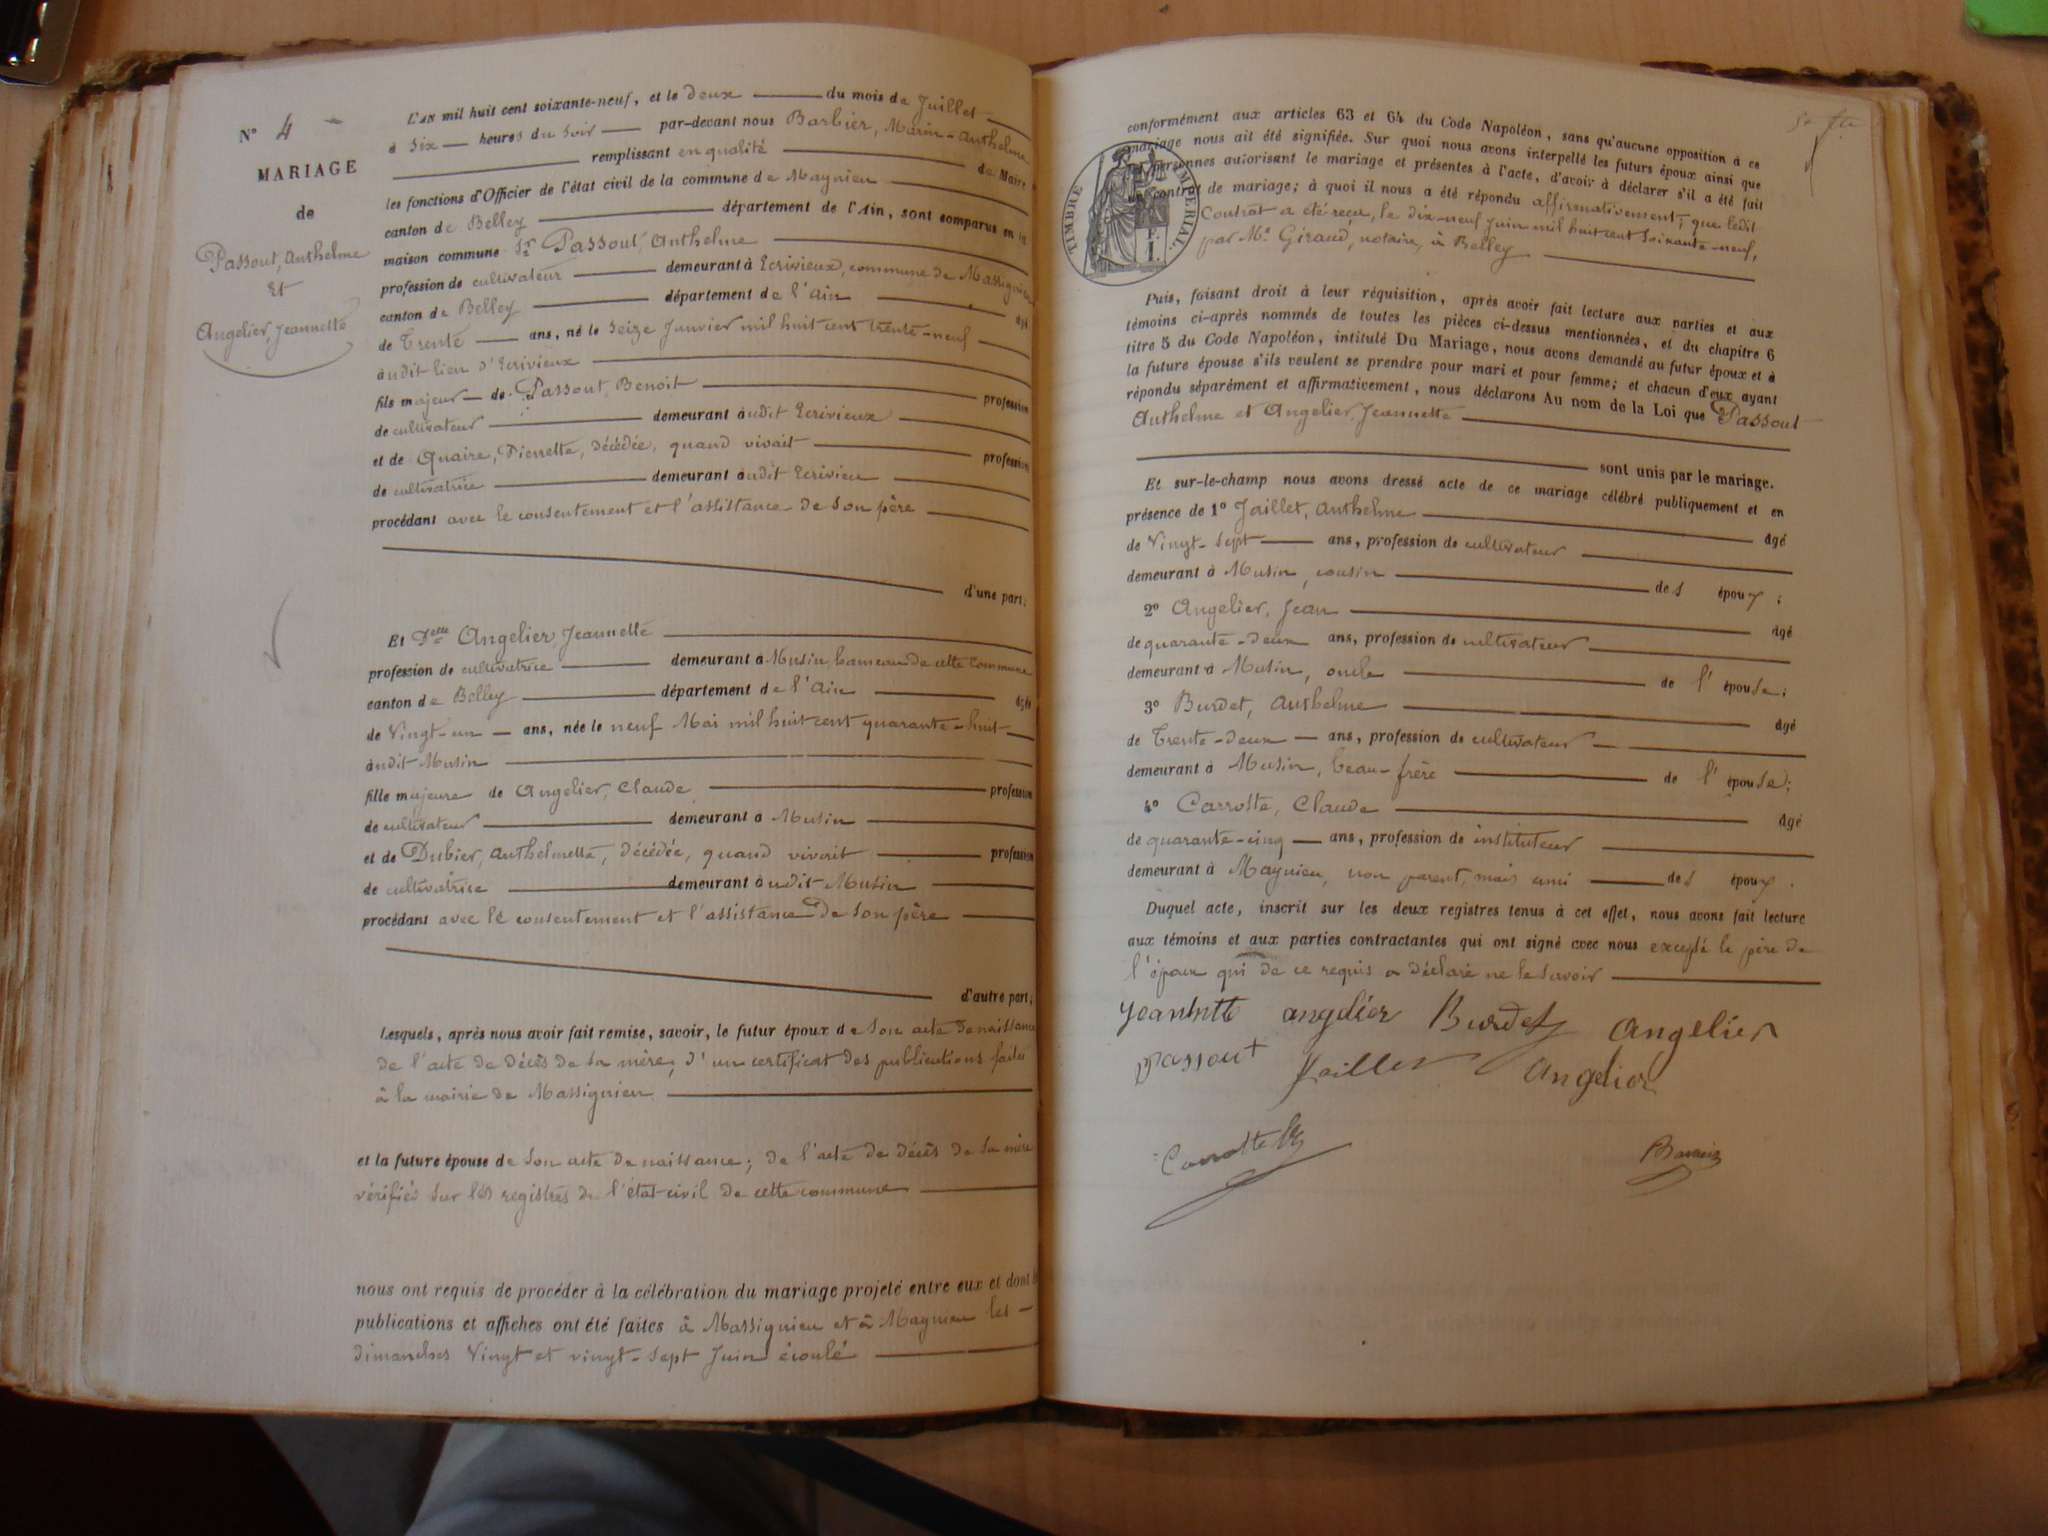 N° 4
MARIAGE
de
Passout, Anthelme
Et
Angelier, Jeannette
L'an mil huit cent soixante-neuf, et le deux du mois de Juillet
à six heures du soir par-devant nous Barbier, Marin-Anthelme
remplissant en qualité de Maire
les fonctions d'Officier de l'état civil de la commune de Magnieu
canton de Belley département de l'Ain, sont comparus en la
maison commune Sr Passout, Anthelme
profession de cultivateur demeurant à Ecrivieux, commune de Massignieu
canton de Belley département de l'Ain âgé
de Trente ans, né le Seize Janvier mil huit cent trente-neuf
audit lieu d'Ecrivieux
fils majeur de Passout, Benoit profession
de cultivateur demeurant audit Ecrivieux
et de Quaire, Pierrette, décédée, quand vivait profession
de cultivatrice demeurant audit Ecrivieu
procédant avec le consentement et l'assistance de son père
d'une part;
Et Delle Angelier, Jeannette
profession de cultivatrice demeurant à Musin, hameau de cette commune
canton de Belley département de l'Ain âgée
de Vingt-un ans, née le neuf Mai mil huit cent quarante-huit
audit Musin
fille majeure de Angelier, Claude profession
de cultivateur demeurant à Musin
et de Dubier, Anthelmette, décédée, quand vivait profession
de cultivatrice demeurant audit Musin
procédant avec le consentement et l'assistance de son père
d'autre part;
Lesquels, après nous avoir fait remise, savoir, le futur époux de son acte de naissance
de l'acte de décès de sa mère; d'un certificat des publications faites
à la mairie de Massignieu
et la future épouse de son acte de naissance; de l'acte de décès de sa mère
vérifiés sur les registres de l'état-civil de cette commune
nous ont requis de procéder à la célébration du mariage projeté entre eux et dont les
publications et affiches ont été faites à Massignieu et à Magnieu les
dimanches Vingt et vingt-sept Juin écoulé
conformément aux articles 63 et 64 du Code Napoléon, sans qu'aucune opposition à ce
mariage nous ait été signifiée. Sur quoi nous avons interpellé les futurs époux ainsi que
personnes autorisant le mariage et présentes à l'acte, d'avoir à déclarer s'il a été fait
contrat de mariage; à quoi il nous a été répondu affirmativement; que ledit
Contrat a été reçu, le dix-neuf Juin mil huit cent soixante-neuf,
par Me Giraud, notaire, à Belley
TIMBRE IMPÉRIAL
Puis, faisant droit à leur réquisition, après avoir fait lecture aux parties et aux
témoins ci-après nommés de toutes les pièces ci-dessus mentionnées, et du chapitre 6
titre 5 du Code Napoléon, intitulé Du Mariage, nous avons demandé au futur époux et à
la future épouse s'ils veulent se prendre pour mari et pour femme; et chacun d'eux ayant
répondu séparément et affirmativement, nous déclarons Au nom de la Loi que Passout
Anthelme et Angelier, Jeannette
sont unis par le mariage.
Et sur-le-champ nous avons dressé acte de ce mariage célébré publiquement et en
présence de 1° Jaillet, Anthelme âgé
de Vingt-sept ans, profession de cultivateur
demeurant à Musin, cousin de l'époux;
2° Angelier, Jean âgé
de quarante-deux ans, profession de cultivateur
demeurant à Musin, oncle de l'épouse;
3° Burdet, Anthelme âgé
de Trente-deux ans, profession de cultivateur
demeurant à Musin, beau-frère de l'épouse;
4° Carrotte, Claude âgé
de quarante-cinq ans, profession de instituteur
demeurant à Magnieu, non parent, mais ami de l'époux.
Duquel acte, inscrit sur les deux registres tenus à cet effet, nous avons fait lecture
aux témoins et aux parties contractantes qui ont signé avec nous excepté le père de
l'époux qui de ce requis a déclaré ne le savoir
Jeannette angelier Burdet angelier
passout Jaillet angelier
Carrotte Barbier